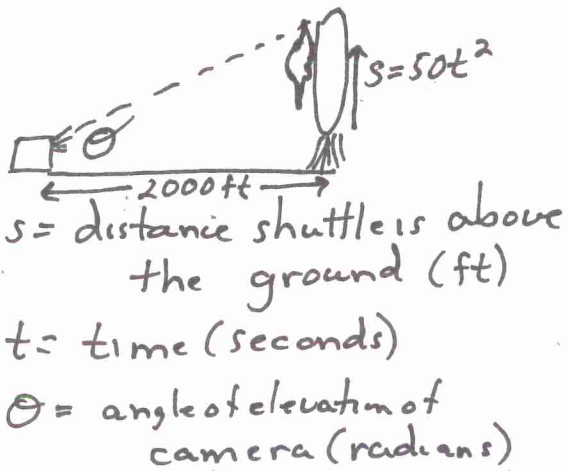 s=50t²
θ
2000ft
s= distance shuttle is above
the ground (ft)
t= time (seconds)
θ= angle of elevation of
camera (radians)